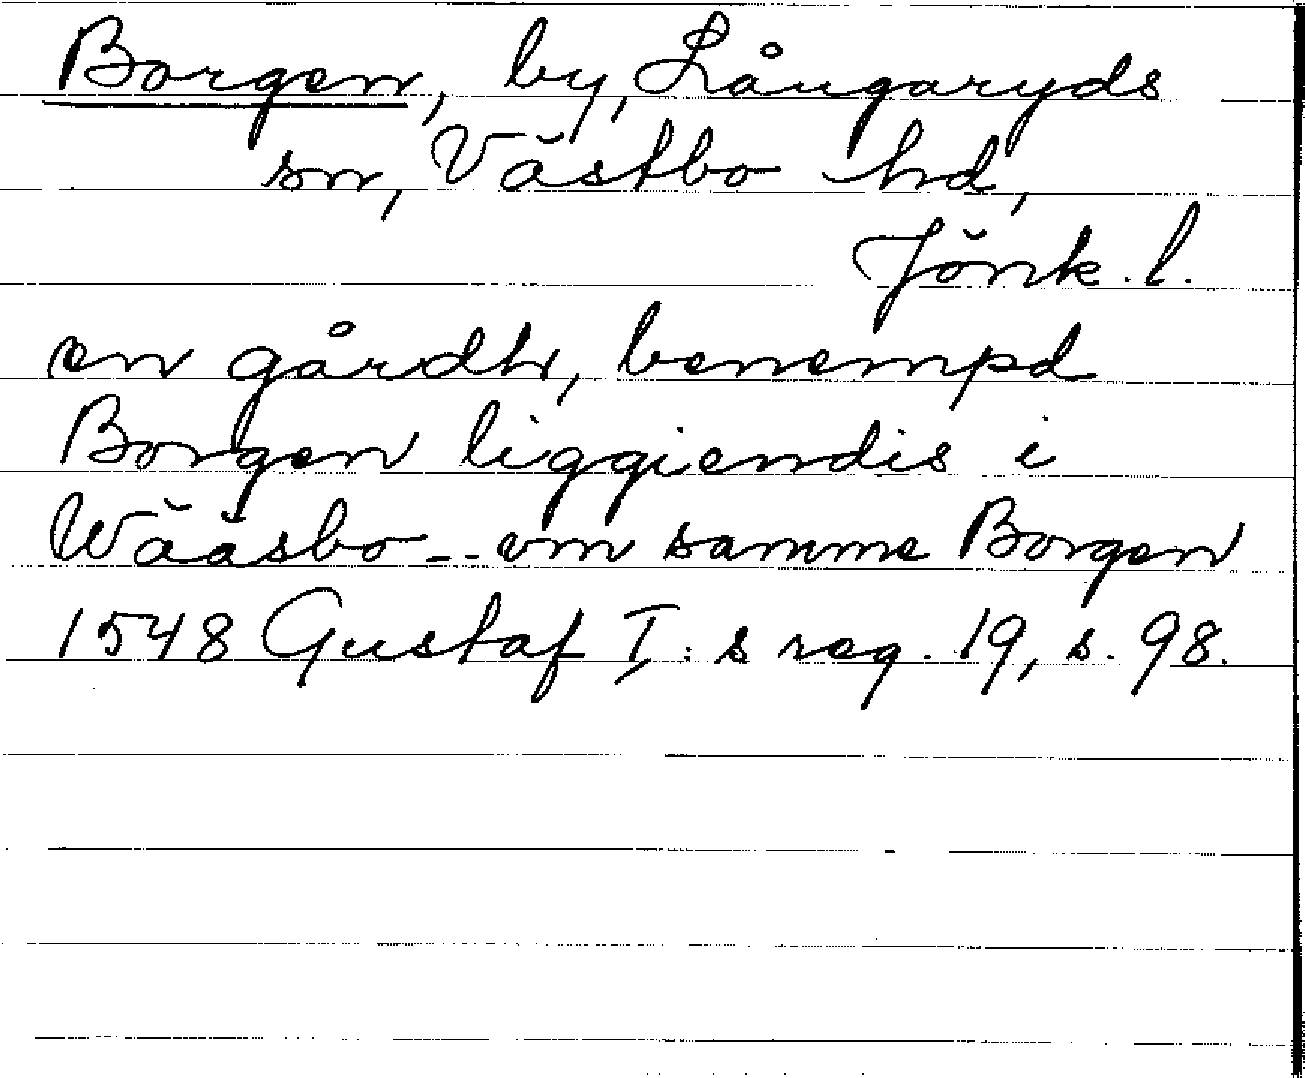 Borgen, by, Långaryds
sn, Västbo hd,
Jönk. l.
en gårdh, benempd
Borgen liggiendis i
Wääsbo -- om samme Borgen
1548 Gustaf I:s reg. 19, s. 98.